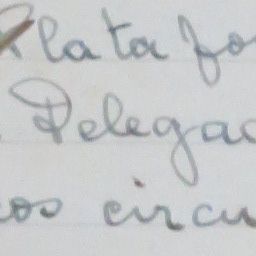 Plata fo
Delegac
cos circu